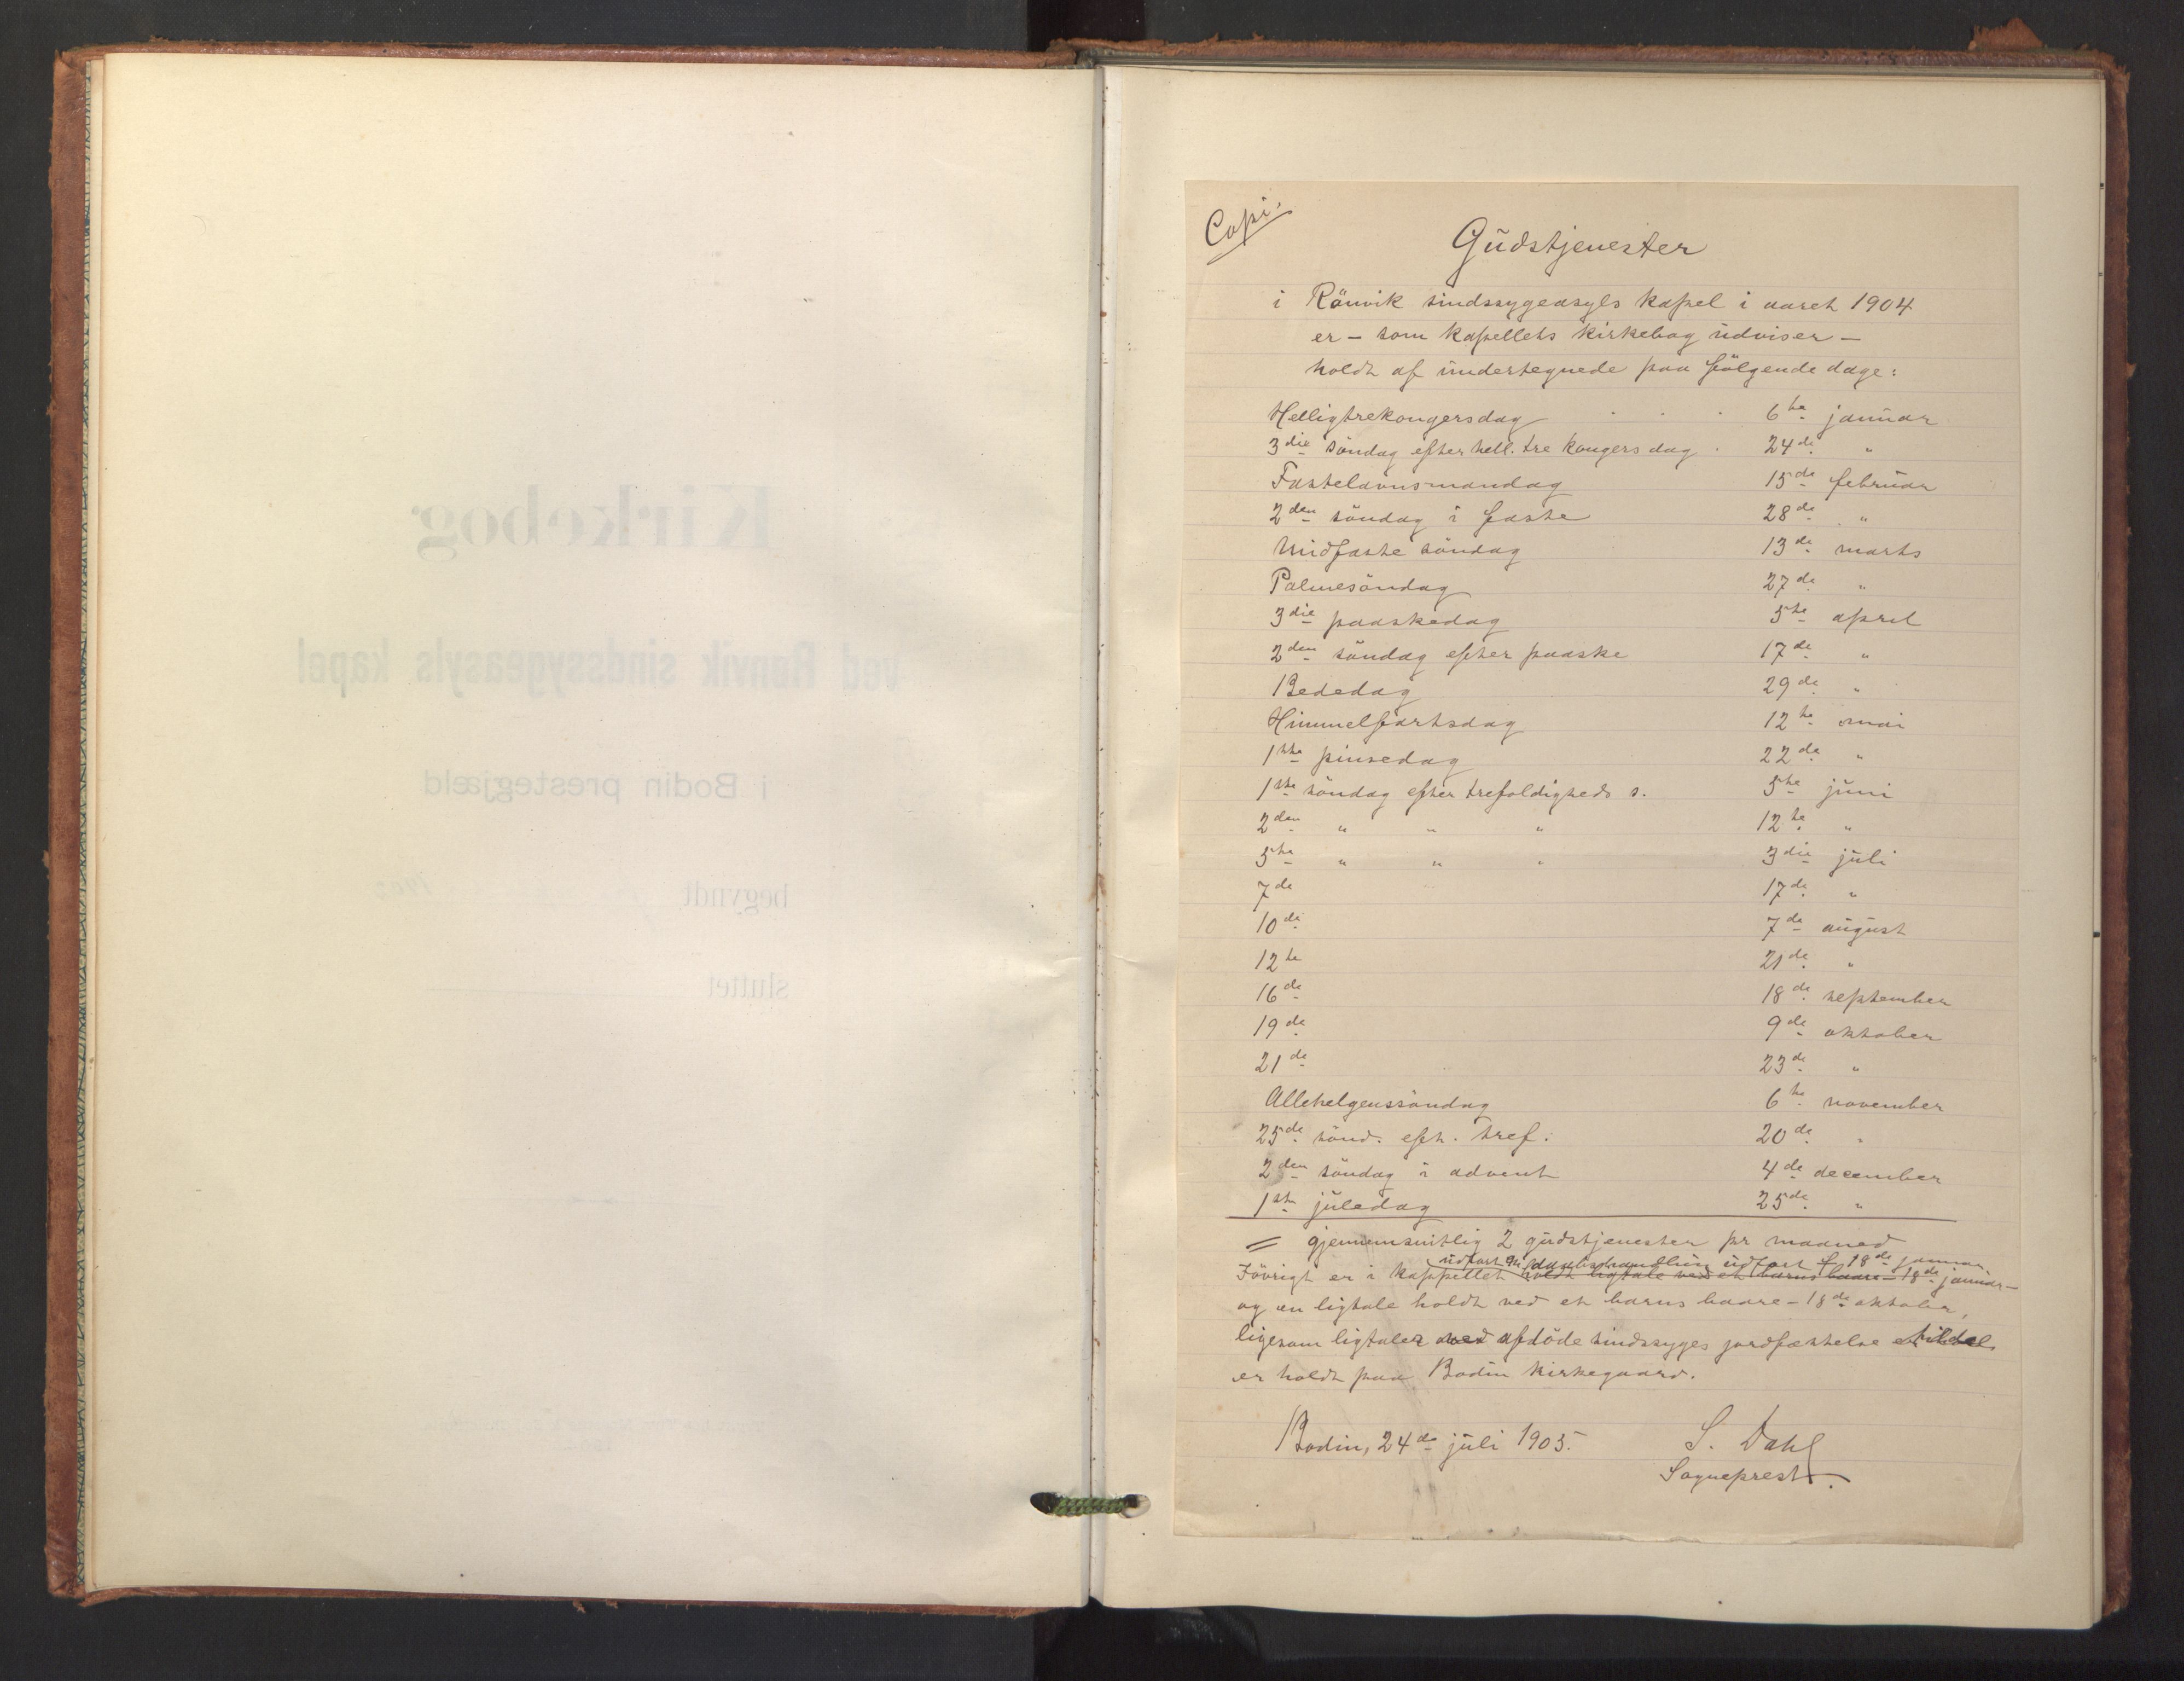 Kirkebog
ved Rønvik sindssygeasyls kapel
i Bodin prestegjæld
begyndt 1902
sluttet
Copi.
Gudstjenester
i Rönvik sindssygeasyls kapel i aaret 1904
er – som kapellets kirkebog udviser –
holdt af undertegnede paa fölgende dage:
Helligtrekongersdag . . . 6te januar
3die söndag efter hell. tre kongers dag . 24de "
Fastelavnsmandag 15de februar
2den söndag i faste 28de "
Midfaste söndag 13de marts
Palmesöndag 27de "
3die paaskedag 5te april
2den söndag efter paaske 17de "
Bededag 29de "
Himmelfartsdag 12te mai
1ste pinsedag 22de "
1ste söndag efter trefoldigheds s. 5te juni
2den " " " 12te "
5te " " " 3die juli
7de 17de "
10de 7de august
12te 21de "
16de 18de september
19de 9de oktober
21de 23de "
Allehelgenssöndag 6te november
25de sönd. eft. tref. 20de "
2den söndag i advent 4de december
1ste juledag 25de "
= gjennemsnitlig 2 gudstjenester pr maaned
udfört en daabshandling udfört 18de januar
Iövrigt er i kappellet holdt ligtale ved et barns baare – 18de januar –
og en ligtale holdt ved et barns baare – 18de oktober,
ligesom ligtaler ved afdöde sindssyges jordfæstelse
er holdt paa Bodin kirkegaard.
Bodin, 24de juli 1905.
S. Dahl
Sogneprest.